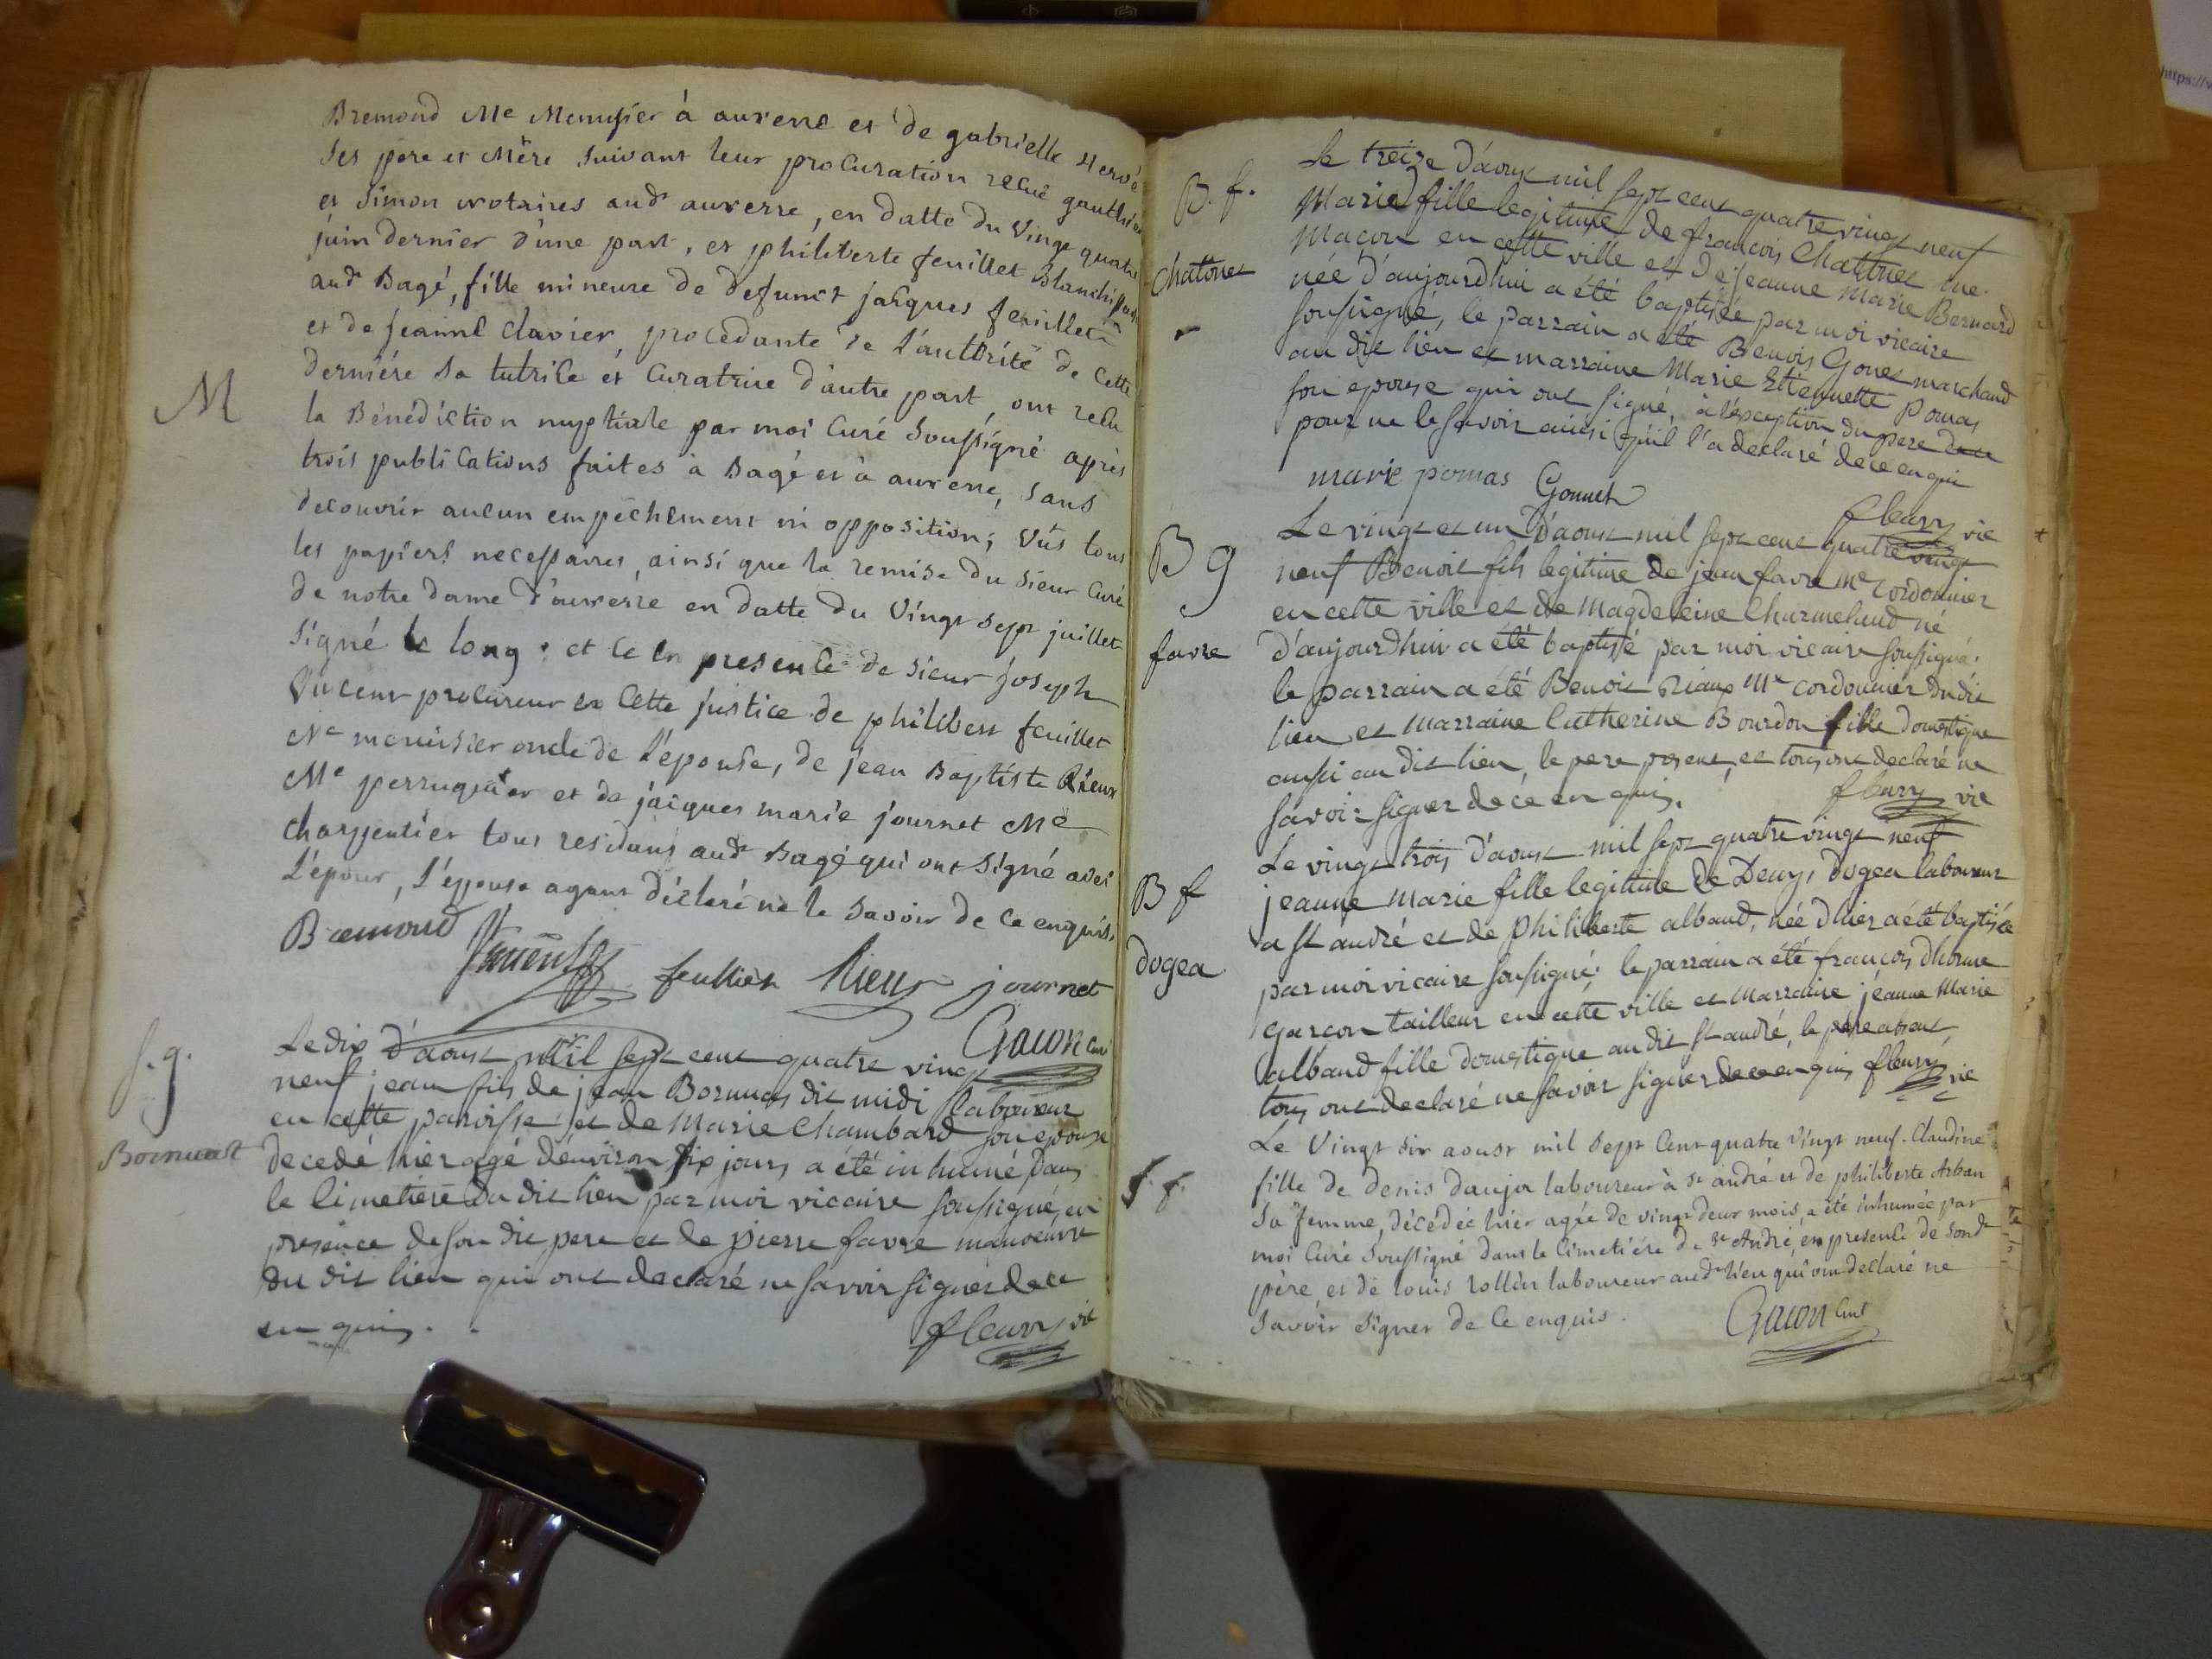 Bremond Me Menusier à auxerre et de gabrielle Hervé
ses pere et Mère suivant leur procuration recue gauthier
et simon notaires audt auxerre, en datte du vingt quatre
juin dernier d'une part, et philiberte feuillet
audt Bagé, fille mineure de defunct jacques feuillet
et de jeanne Clavier, procedante de l'authorité de cette
M
derniére sa tutrice et Curatrice d'autre part, ont recu
la Bénédiction nuptiale par moi Curé Soussigné après
trois publications faites à Bagé et à auxerre, sans
decouvrir aucun empêchement ni opposition; vûs tous
les papiers necessaires, ainsi que la remise du sieur Curé
de notre dame d'auxerre en datte du vingt sept juillet
signé le long; et ce en presence de sieur joseph
Vincent procureur en cette justice de philibert feuillet
Me menuisier oncle de l'épouse, de jean Baptiste Rieux
Me perruquier et de jacques marie journet Me
charpentier tous residans audt Bagé qui ont signé avec
l'époux, l'épouse ayant déclaré ne le savoir de ce enquis.
Bremond Vincent feuillet Rieux journet
Gacon Curé
S.g.
Le dix d'aoust mil sept cent quatre vingt
neuf jean fils de jean Bornuat dit midi laboureur
en cette paroisse et de Marie Chambard son epouse
Bornuat
decedé hier agé d'environ dix jours a été inhumé dans
le Cimetiére du dit lieu par moi vicaire soussigné, en
presence de son dit pere et de pierre favre manoeuvre
du dit lieu qui ont declaré ne savoir signer de ce
en quis.
fleury vic
B. f.
Le treize d'aoust mil sept cent quatre vingt neuf
Marie fille legitime de francois Chattonet Me
Chatonet
Maçon en cette ville et de jeanne Marie Bernard
née d'aujourdhui a été baptisée par moi vicaire
soussigné, le parrain a été Benoit Gonet marchand
au dit lieu et marraine Marie Etiennette Pomas
son epouse qui ont signé, à l'exception du pere
pour ne le savoir ainsi qu'il l'a declaré de ce enquis
marie pomas Gonnet
fleury vic
B g
Le vingt et un d'aoust mil sept cent quatre vingt
neuf Benoit fils legitime de jean favre Me Cordonnier
en cette ville et de Magdeleine Charmeland né
favre
d'aujourdhui a été baptisé par moi vicaire soussigné.
le parrain a été Benoit Me cordonnier du dit
lieu et marraine Catherine Bourdon fille domestique
aussi au dit lieu, le pere present, et tous ont declaré ne
savoir signer de ce en quis.
fleury vic
B f
Le vingt trois d'aoust mil sept quatre vingt neuf
jeanne Marie fille legitime de Denys dogea laboureur
a St andré et de Philiberte alband, née d'hier a été baptisée
dogea
par moi vicaire soussigné; le parrain a été francois dhorme
garcon tailleur en cette ville et Marraine jeanne Marie
alband fille domestique au dit St andré, le pere absent,
tous ont declaré ne savoir signer de ce enquis fleury vic
S. f.
Le Vingt six aoust mil sept Cent quatre vingt neuf. Claudine
fille de denis daujea laboureur à St andré et de philiberte Arban
sa femme, décédée hier agée de vingt deux mois, a été inhumée par
moi Curé Soussigné dans le Cimetiére de St André, en presence de sondt
père, et de louis rollin laboureur audt lieu qui ont declaré ne
savoir signer de ce enquis.
Gacon Curé
https://